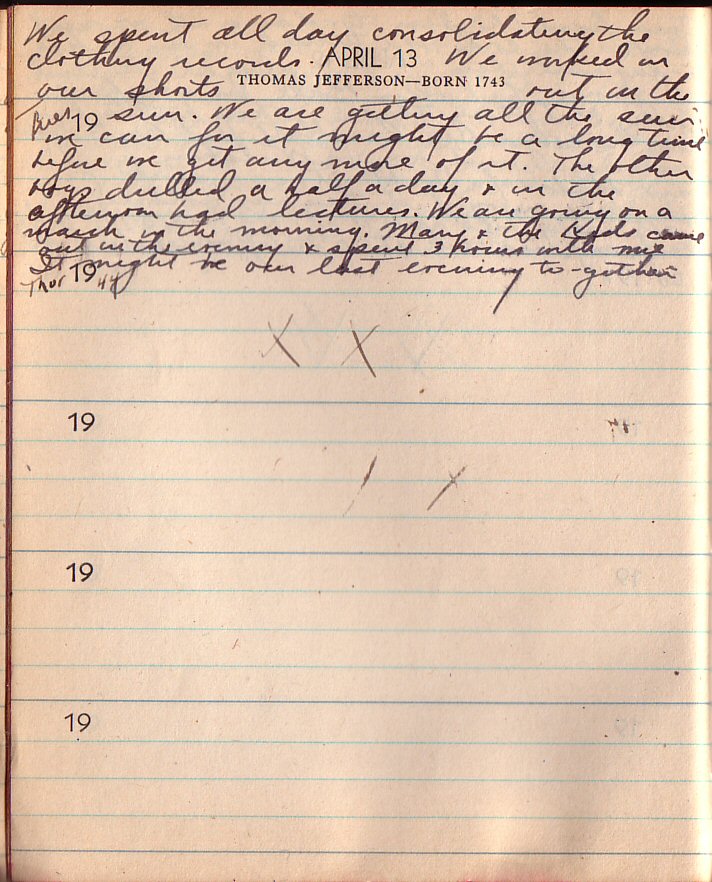 We spent all day consolidating the
clothing records. APRIL 13 We worked in
our shorts THOMAS JEFFERSON—BORN 1743 out in the
19 sun. We are getting all the sun
we can for it might be a long time
before we get any more of it. The other
boys drilled a half a day & in the
afternoon had lectures. We are going on a
march in the morning. Mary & the kids came
out in the evening & spent 3 hours with me
It might be our last evening to-gether
Thur 19 44
19
19
19